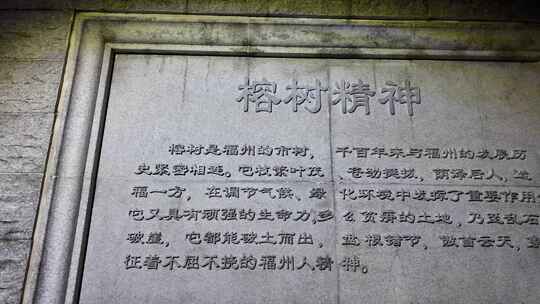 榕树精神
榕树是福州的市树，千百年来与福州的发展历
史紧密相连。它枝繁叶茂 苍劲挺拔，荫泽后人，
福一方，在调节气候、绿化环境中发挥了重要作用
它又具有顽强的生命力，多么贫瘠的土地，乃至乱石
破崖，它都能破土而出，盘根错节，傲首云天，
征着不屈不挠的福州人精神。